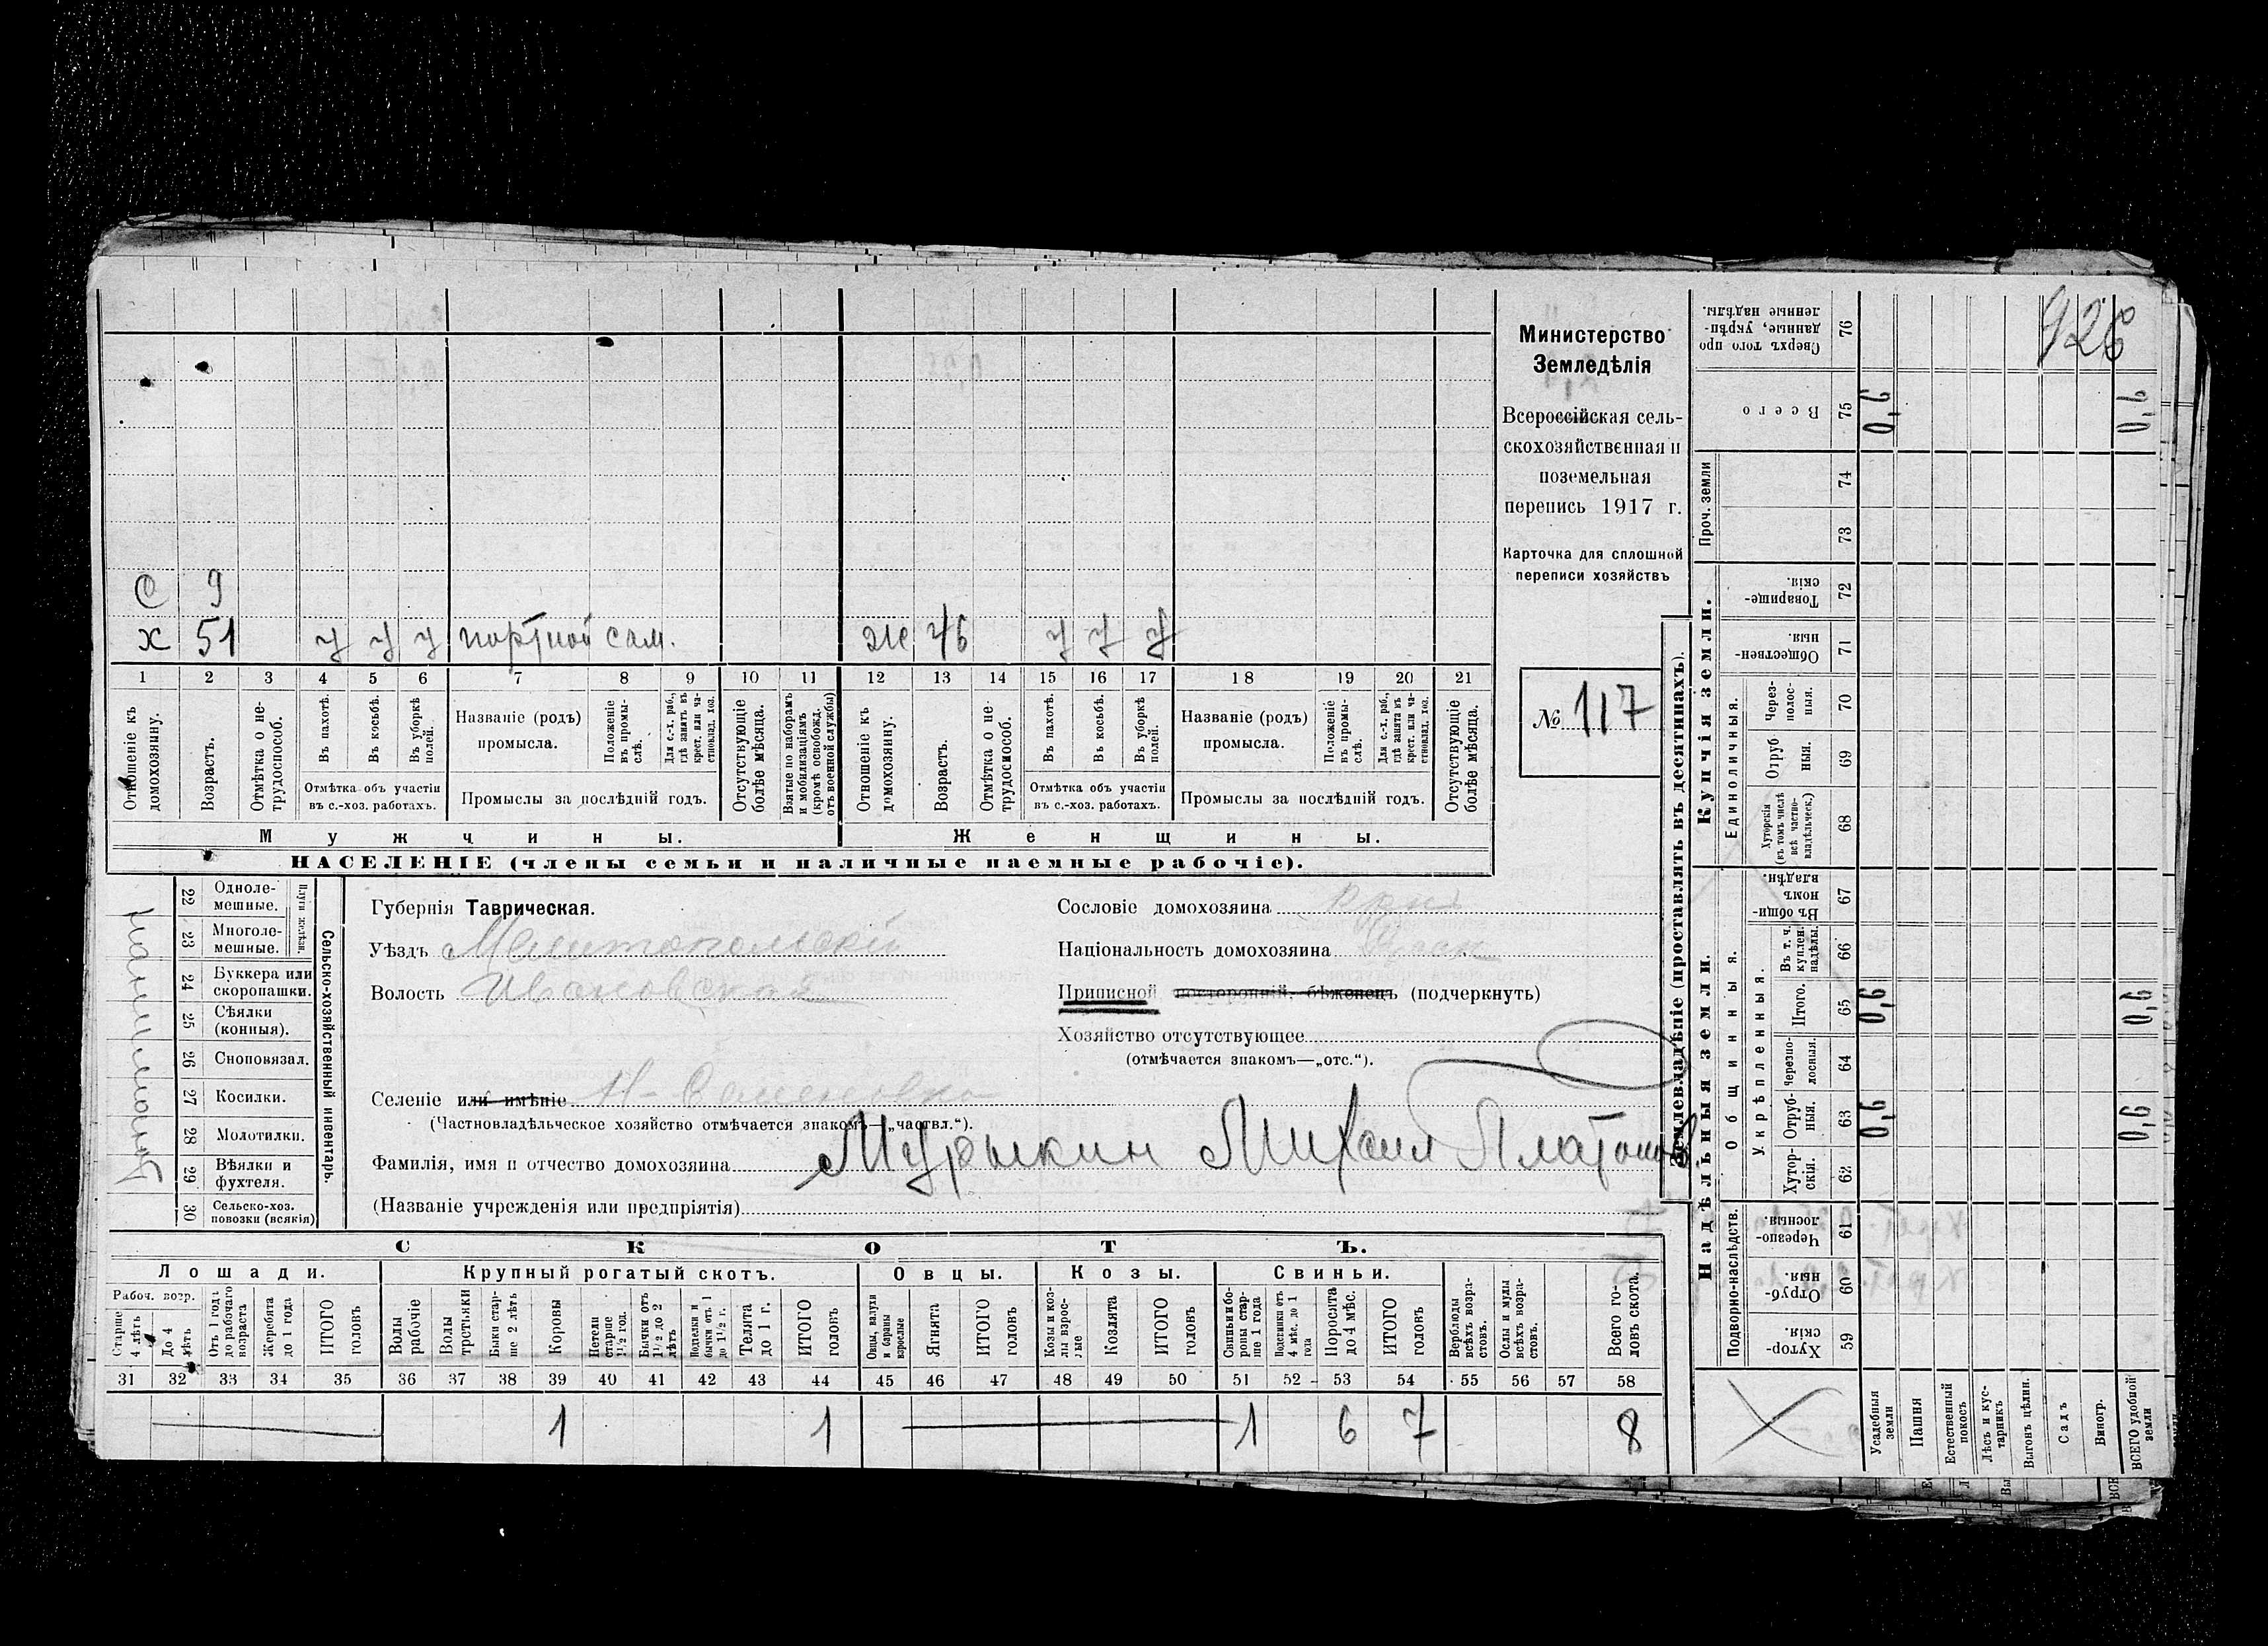 С 9
х 51 у у у портной сам. Ж 46 у у у
1 2 3 4 5 6 7 8 9 10 11 12 13 14 15 16 17 18 19 20 21
Отношеніе къ домохозяину.
Возрастъ.
Отмѣтка о нетрудоспособ.
Въ пахотѣ.
Въ косьбѣ.
Въ уборкѣ полей.
Отмѣтка объ участіи въ с.-хоз. работахъ.
Названіе (родъ) промысла.
Положеніе въ промыслѣ.
Для с.-х. раб., гдѣ занятъ въ крест. или частновлад. хоз.
Промыслы за послѣдній годъ.
Отсутствующіе болѣе мѣсяца.
Взятые по наборамъ и мобилизаціямъ (кромѣ освобожд. отъ военной службы)
Отношеніе къ домохозяину.
Возрастъ.
Отмѣтка о нетрудоспособ.
Въ пахотѣ.
Въ косьбѣ.
Въ уборкѣ полей.
Отмѣтка объ участіи въ с.-хоз. работахъ.
Названіе (родъ) промысла.
Положеніе въ промыслѣ.
Для с.-х. раб., гдѣ занята въ крест. или частновлад. хоз.
Промыслы за послѣдній годъ.
Отсутствующіе болѣе мѣсяца.
Мужчины. Женщины.
НАСЕЛЕНІЕ (члены семьи и наличные наемные рабочіе).
Министерство
Земледѣлія
Всероссійская сель-
скохозяйственная и
поземельная
перепись 1917 г.
Карточка для сплошной
переписи хозяйствъ
№ 117
Сельско-хозяйственный инвентарь.
Плуги желѣзн.
22 Одноле-мешные.
23 Многоле-мешные.
24 Буккера или скоропашки.
25 Сѣялки (конныя).
26 Сноповязал.
27 Косилки.
28 Молотилки.
29 Вѣялки и фухтеля.
30 Сельско-хоз. повозки (всякія)
Губернія Таврическая.
Уѣздъ Мелитопольскій
Волость Ивановская
Селеніе или имѣніе Н-Семеновка
(Частновладѣльческое хозяйство отмѣчается знакомъ—„частвл.“).
Фамилія, имя и отчество домохозяина Мурыкин Михаил Платонов.
(Названіе учрежденія или предпріятія)
Сословіе домохозяина
Національность домохозяина Русск.
Приписной, посторонній, бѣженецъ (подчеркнуть)
Хозяйство отсутствующее
(отмѣчается знакомъ—„отс.“).
СКОТЪ.
Лошади. Крупный рогатый скотъ. Овцы. Козы. Свиньи.
Рабоч. возр.
Старше 4 лѣтъ
До 4 лѣтъ
Отъ 1 года до рабочаго возраста
Жеребята до 1 года
ИТОГО головъ
Волы рабочіе
Волы третьяки
Быки старше 2 лѣтъ
Коровы
Нетели старше 1½ год.
Бычки отъ 1½ до 2 лѣтъ
Подтелки и бычки отъ 1 до 1½ г.
Телята до 1 г.
ИТОГО головъ
Овцы, валухи и бараны взрослые
Ягнята
ИТОГО головъ
Козы и козлы взрослые
Козлята
ИТОГО головъ
Свиньи и боровы старше 1 года
Подсвинки отъ 4 мѣс. до 1 года
Поросята до 4 мѣс.
ИТОГО головъ
Верблюды всѣхъ возрастовъ.
Ослы и мулы всѣхъ возрастовъ.
Всего головъ скота.
31 32 33 34 35 36 37 38 39 40 41 42 43 44 45 46 47 48 49 50 51 52 53 54 55 56 57 58
1 1 1 6 7 8
Землевладѣніе (проставлять въ десятинахъ).
Купчія земли.
Надѣльныя земли.
926
76 Сверхъ того проданные, укрѣпленные надѣлы.
75 Всего 0,6 0,6
Проч. земли
74
73
72 Товарищескія.
71 Общественныя.
Единоличныя.
70 Чрезполосныя.
69 Отрубныя.
68 Хуторскія (въ томъ числѣ всѣ частновладѣльческ.)
Общинныя.
67 Въ общинномъ владѣн.
Укрѣпленныя.
66 Въ т. ч. куплен. надѣлы.
65 Итого. 0,6 0,6
64 Черезполосныя.
63 Отрубныя. 0,6 0,6
62 Хуторскія.
Подворно-наслѣдств.
61 Черезполосныя.
60 Отрубныя.
59 Хуторскія.
Усадебныя земли
Пашня
Естественный покосъ
Лѣсъ и кустарникъ
Выгонъ цѣлин.
Садъ
Виногр.
ВСЕГО удобной земли